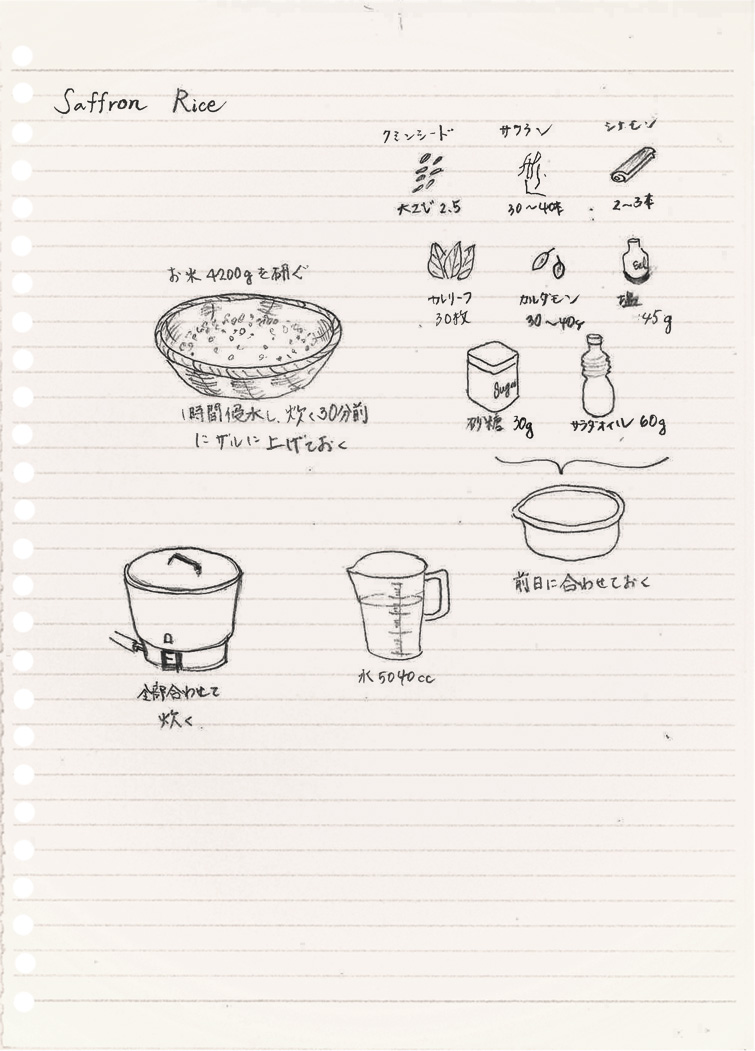 Saffron Rice
クミンシード
サフラン
シナモン
大さじ 2.5
30〜40本
2〜3本
お米 4200gを研ぐ
Sel
カレリーフ
カルダモン
塩
30枚
30〜40g
45g
Sugar
砂糖 30g
サラダオイル 60g
1時間浸水し、炊く30分前
にザルに上げておく
前日に合わせておく
水 5040cc
全部合わせて
炊く